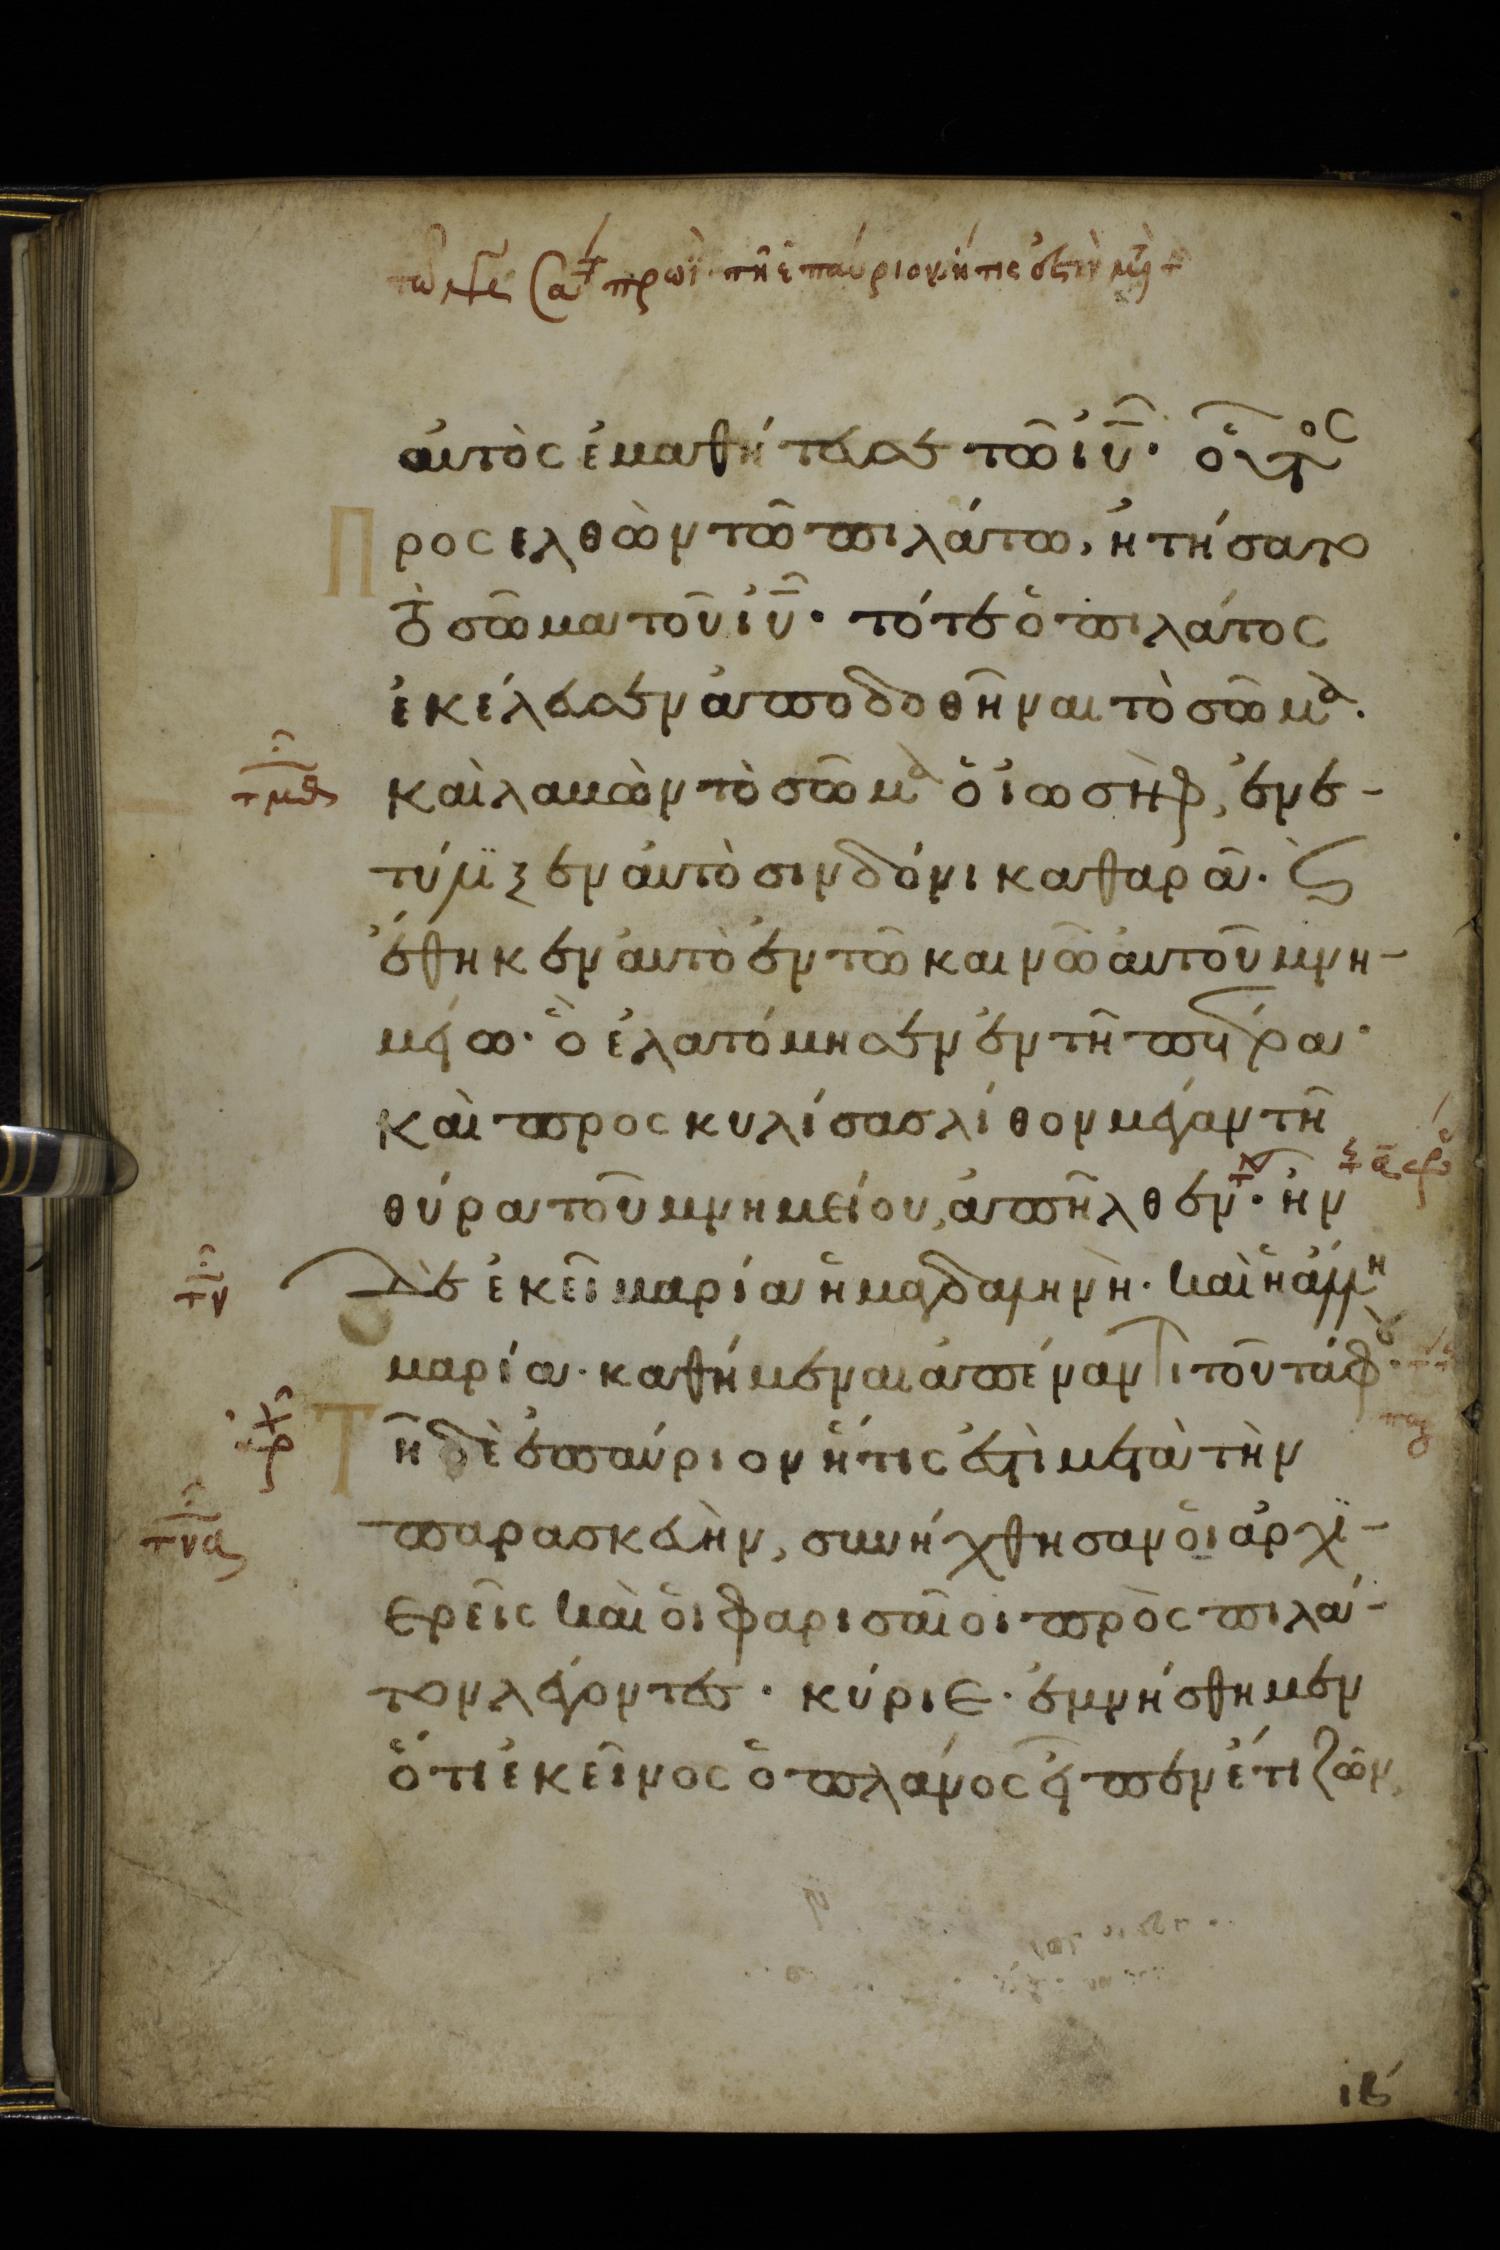 πρωῒ τῆ ἐπαύριον ἥτις ἐστὶν μετὰ
αὐτὸς ἐμαθήτευσε τῶ ἰῦ· οὗτος
Προσελθὼν τῶ πιλάτω, ἠτήσατο
τὸ σῶμα τοῦ ἰῦ· τότε ὁ πιλάτος
ἐκέλευσεν ἀποδοθῆναι τὸ σῶμα.
τμθ
καὶ λαβὼν τὸ σῶμα ὁ ἰωσὴφ, ἐνε-
τύλιξεν αὐτὸ σινδόνι καθαρᾶ. καὶ
ἔθηκεν αὐτὸ ἐν τῶ καινῶ αὐτοῦ μνη-
μείω· ὃ ἐλατόμησεν ἐν τῆ πέτρα·
καὶ προσκυλίσας λίθον μέγαν τῆ
θύρα τοῦ μνημείου, ἀπῆλθεν· ἦν
τν
δὲ ἐκεῖ μαρία ἡ μαγδαληνὴ· καὶ ἡ ἄλλη
μαρία· καθήμεναι ἀπέναντι τοῦ τάφου·
Τῆ δὲ ἐπαύριον ἥτις ἐστὶ μετὰ τὴν
τνα
παρασκευὴν, συνήχθησαν οἱ ἀρχι-
ερεῖς καὶ οἱ φαρισαῖοι πρὸς πιλά-
τον λέγοντες· κύριε· ἐμνήσθημεν
ὅτι ἐκεῖνος ὁ πλάνος εἶπεν ἔτι ζῶν,
ιβ